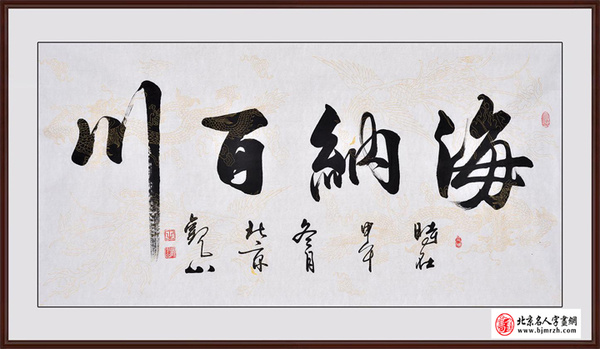 海納百川
時在
甲午
冬月
北京
觀山
北京名人字畫網
www.bjmrzh.com